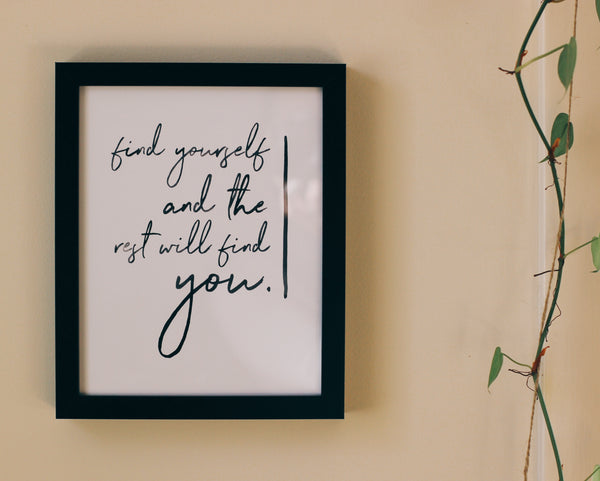 find yourself
and the
rest will find
you.